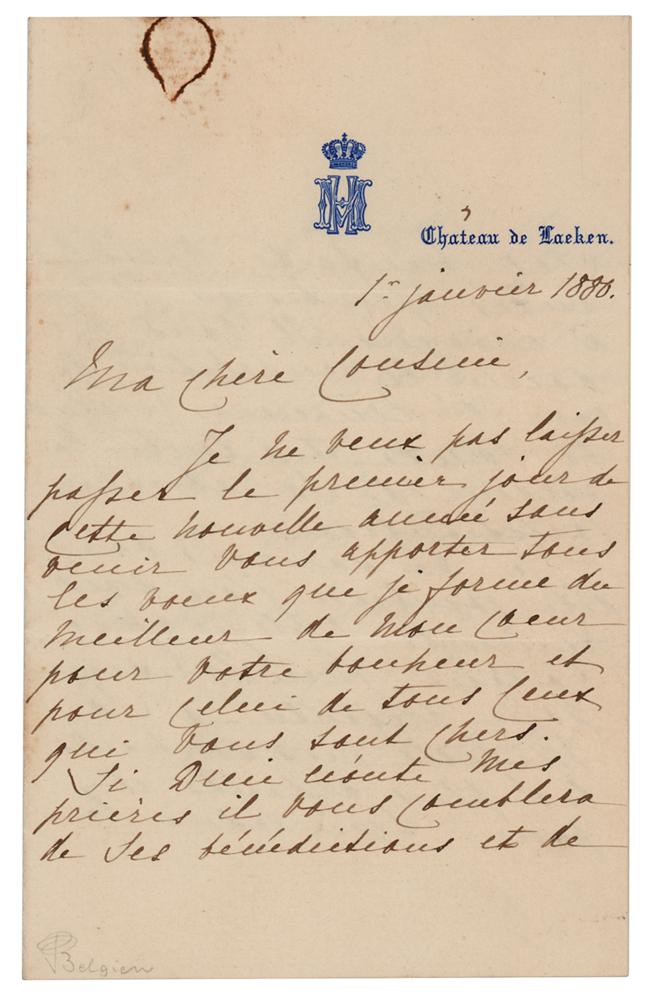 Château de Laeken.
1r janvier 1880.
Ma chère Cousine,
Je ne veux pas laisser
passer le premier jour de
cette nouvelle année sans
venir vous apporter tous
les voeux que je forme du
meilleur de mon coeur
pour votre bonheur et
pour celui de tous ceux
qui vous sont chers.
Si Dieu écoute mes
prières il vous comblera
de ses bénédictions et de
Belgien